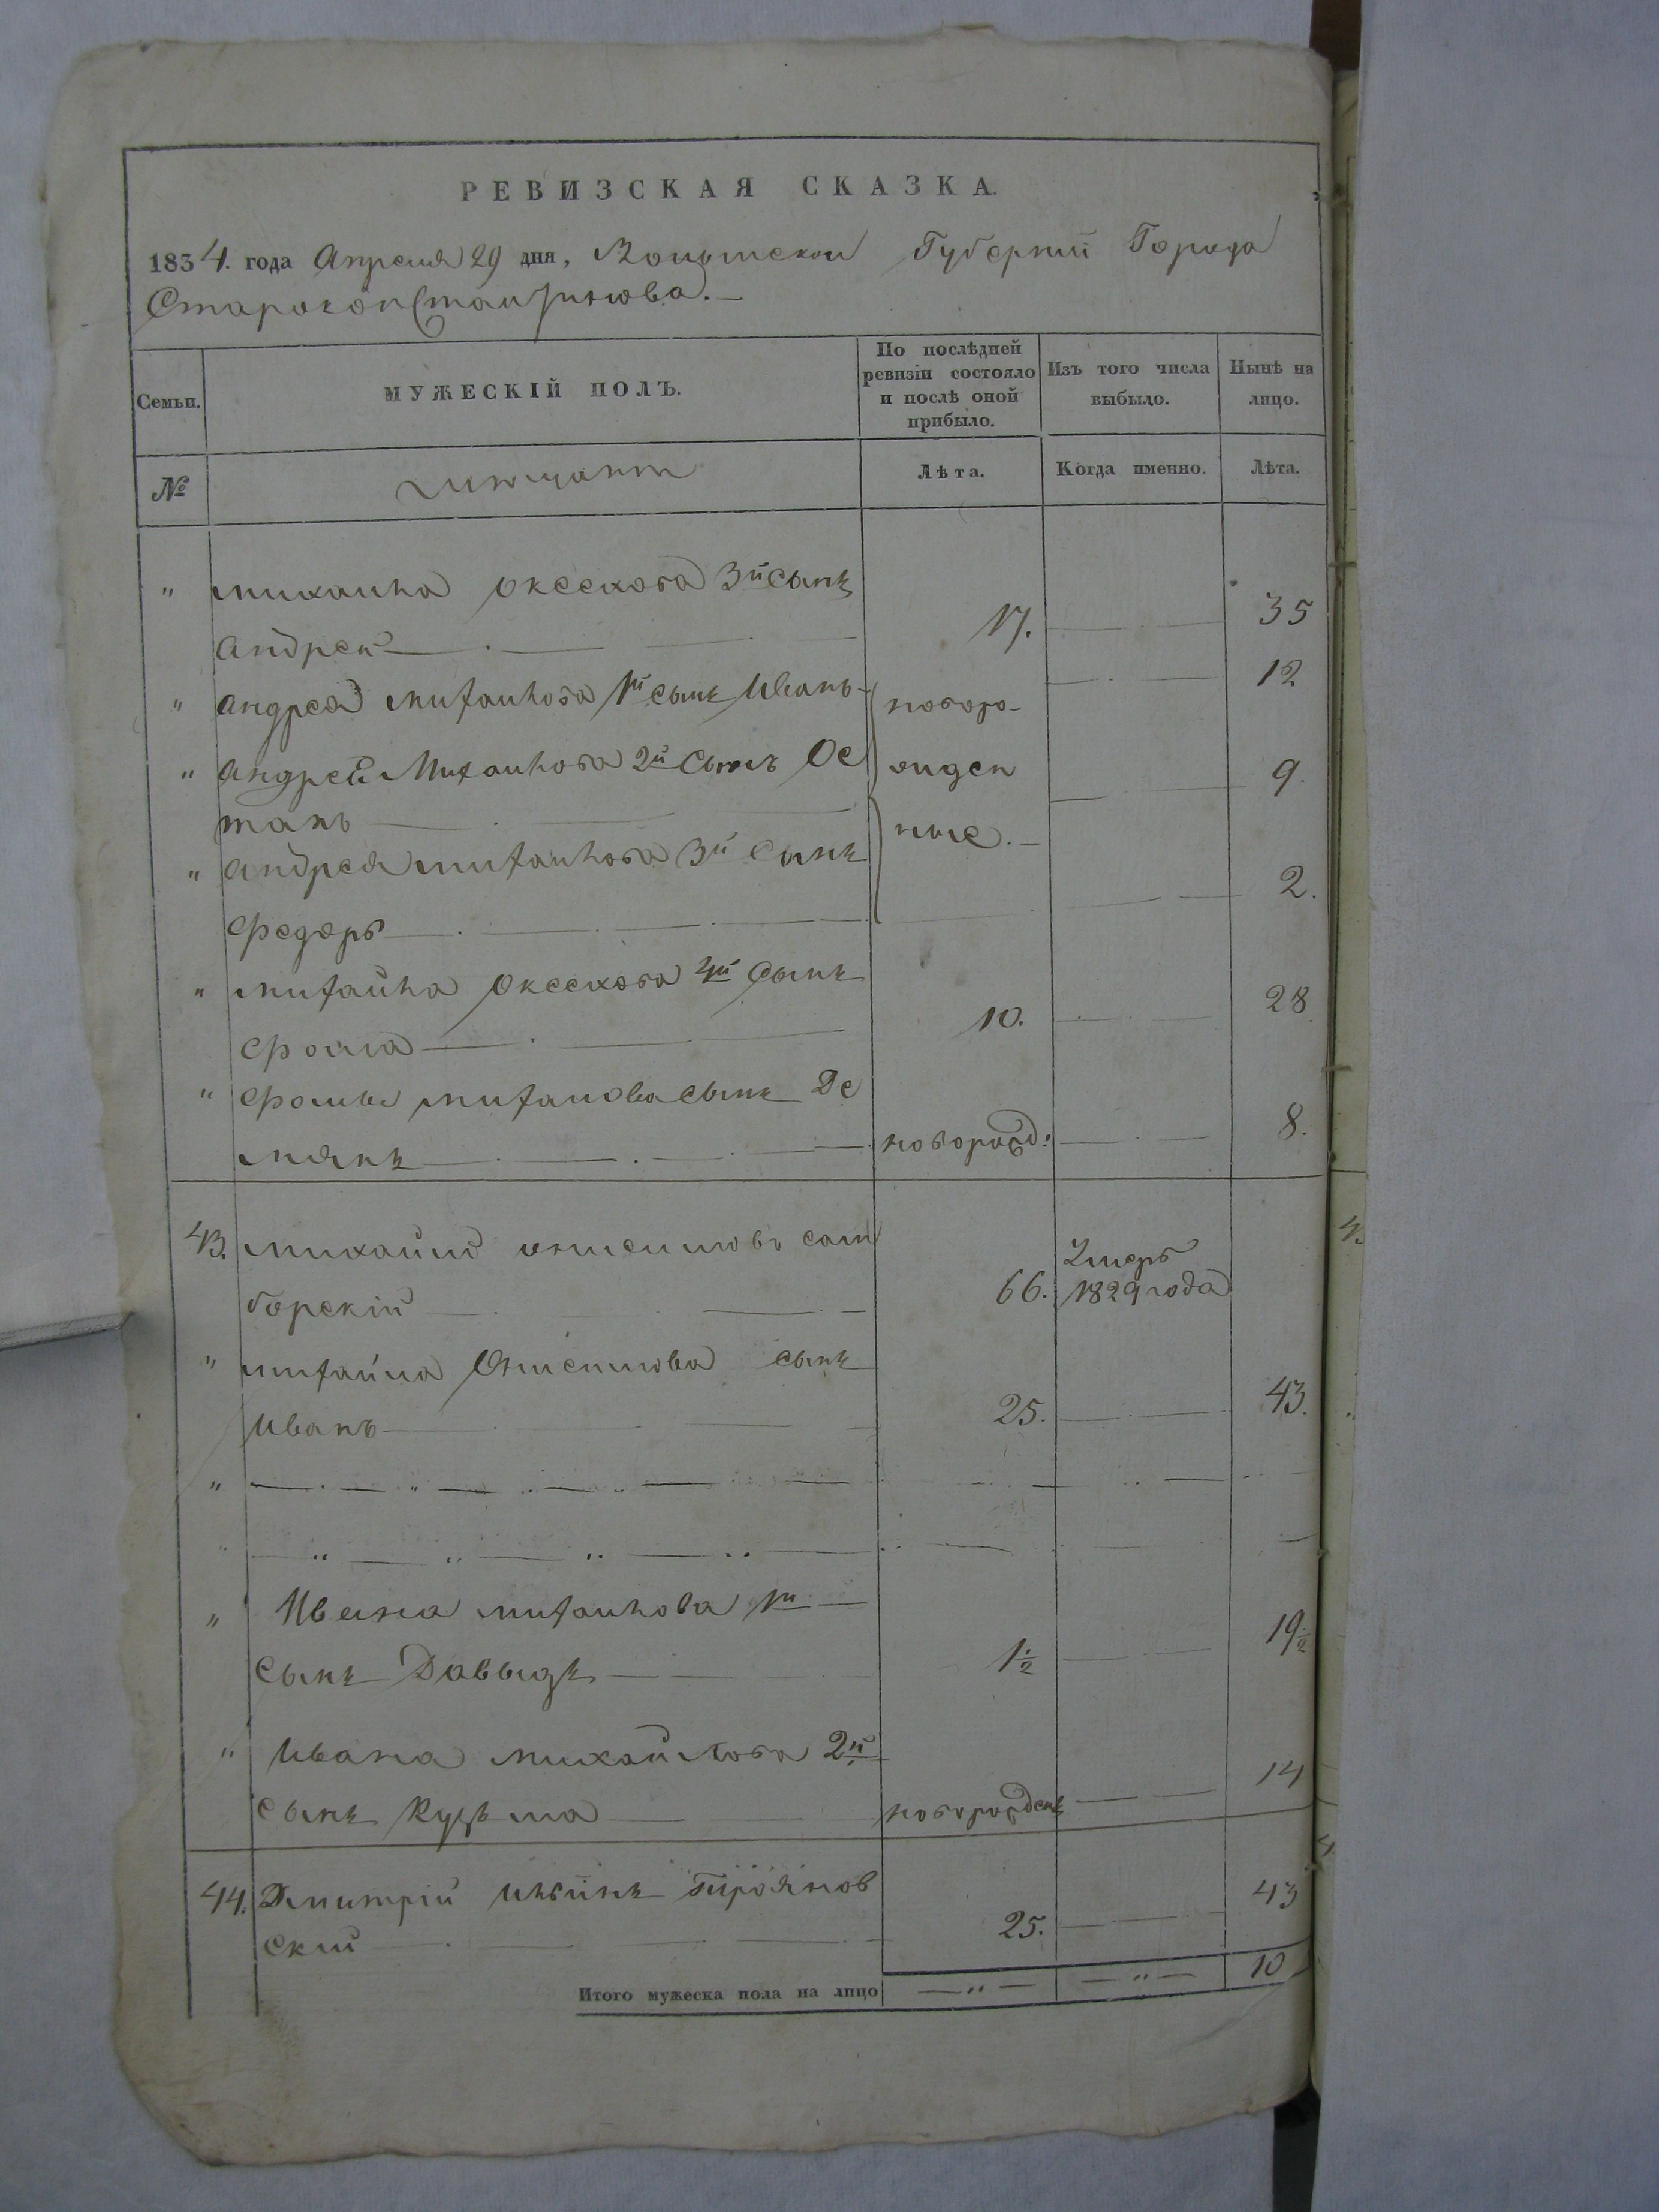 РЕВИЗСКАЯ СКАЗКА.
1834. года Апреля 29 дня, Волынской Губерній Города
Староконстантинова.
Семьи.
МУЖЕСКІЙ ПОЛЪ.
По послѣдней ревизіи состояло и послѣ оной прибыло.
Изъ того числа выбыло.
Нынѣ на лицо.
№
Лѣта.
Когда именно.
Лѣта.
" михаила 3й сынъ
Андрей 17. 35
" Андрея Михайлова 1й сынъ Иванъ новоро- 12
" Андрей Михайлова 2й сынъ Ос жден 9.
тапъ ные.
" Андрея михайлова 3й сынъ
Федоръ 2.
" михайла 4й сынъ
Фома 10. 28
" Фомы сынъ Де
мянъ новорожд: 8.
43. михайло онисимовъ сам
борскій 66. Умеръ 1829 года
" михайла Онисимова сынъ
Иванъ 25. 43.
" Ивана михайлова 1й
сынъ Давыдъ 1 1/2 19 1/2
" Ивана михайлова 2й
сынъ Кузьма новорожденъ 14
44. Дмитрій Троянов
ский 25. 43
Итого мужеска пола на лицо 10